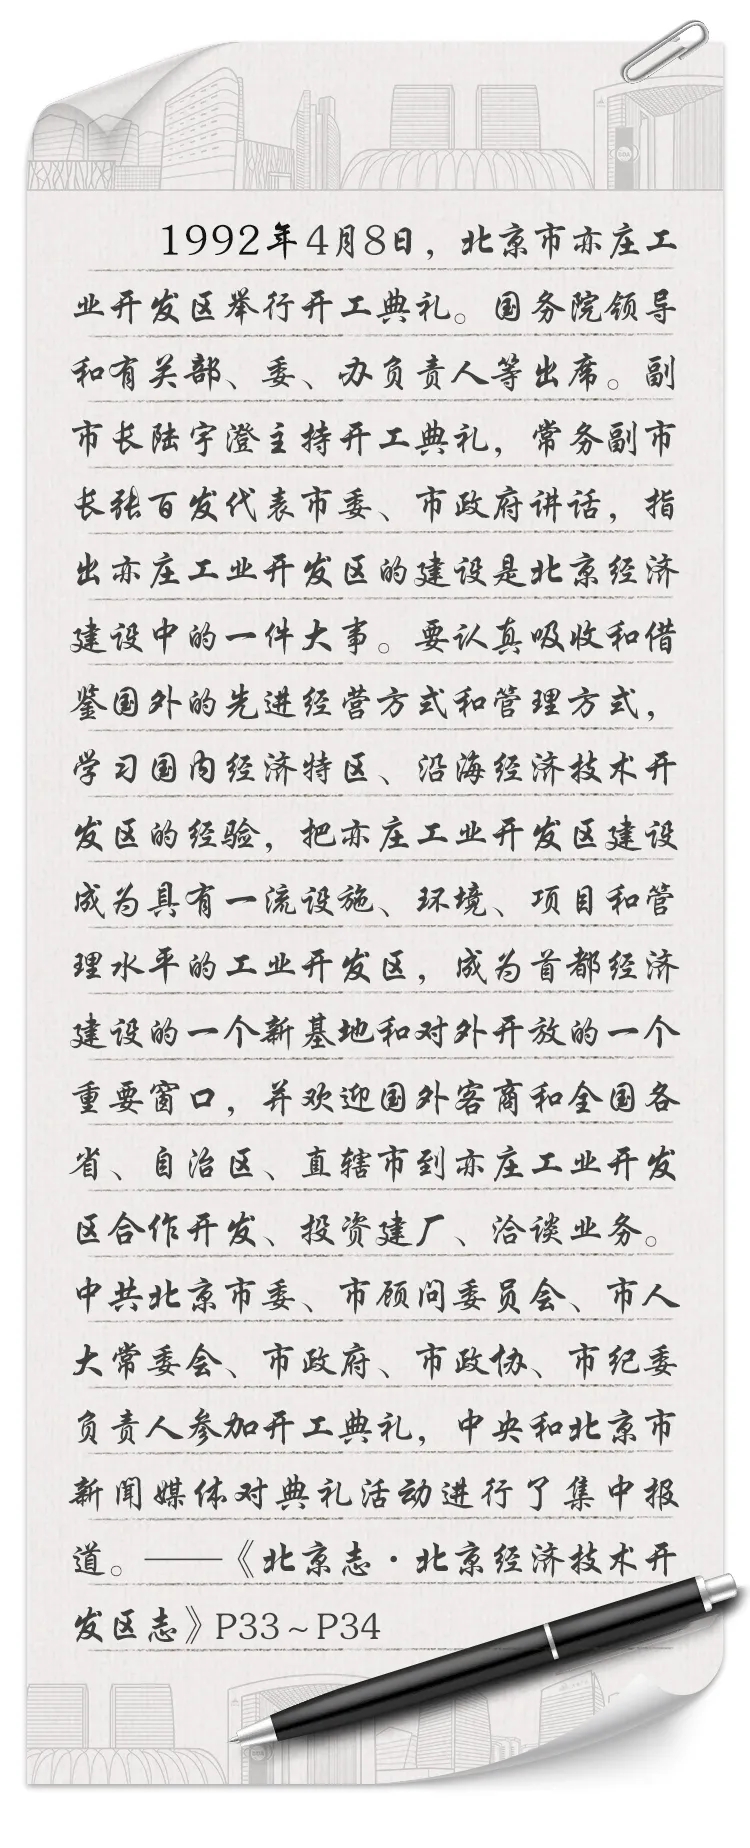 1992年4月8日，北京市亦庄工
业开发区举行开工典礼。国务院领导
和有关部、委、办负责人等出席。副
市长陆宇澄主持开工典礼，常务副市
长张百发代表市委、市政府讲话，指
出亦庄工业开发区的建设是北京经济
建设中的一件大事。要认真吸收和借
鉴国外的先进经营方式和管理方式，
学习国内经济特区、沿海经济技术开
发区的经验，把亦庄工业开发区建设
成为具有一流设施、环境、项目和管
理水平的工业开发区，成为首都经济
建设的一个新基地和对外开放的一个
重要窗口，并欢迎国外客商和全国各
省、自治区、直辖市到亦庄工业开发
区合作开发、投资建厂、洽谈业务。
中共北京市委、市顾问委员会、市人
大常委会、市政府、市政协、市纪委
负责人参加开工典礼，中央和北京市
新闻媒体对典礼活动进行了集中报
道。——《北京志·北京经济技术开
发区志》P33~P34